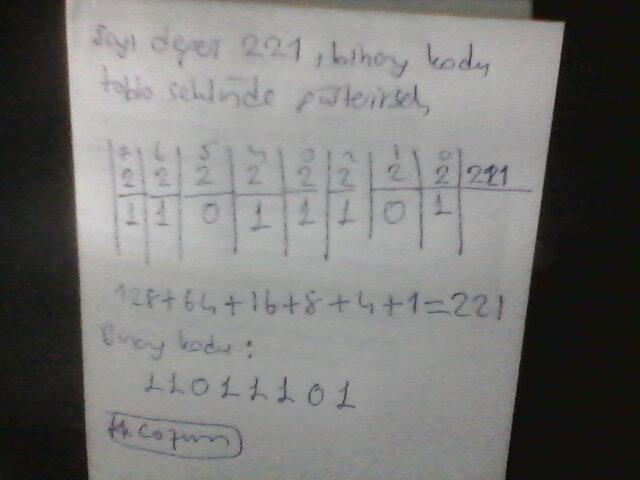 Sayı değeri 221, binary kodu
tablo şeklinde gösterirsek,
7 6 5 4 3 2 1 0
2 2 2 2 2 2 2 2 221
1 1 0 1 1 1 0 1
128+64+16+8+4+1=221
Binary kodu:
11011101